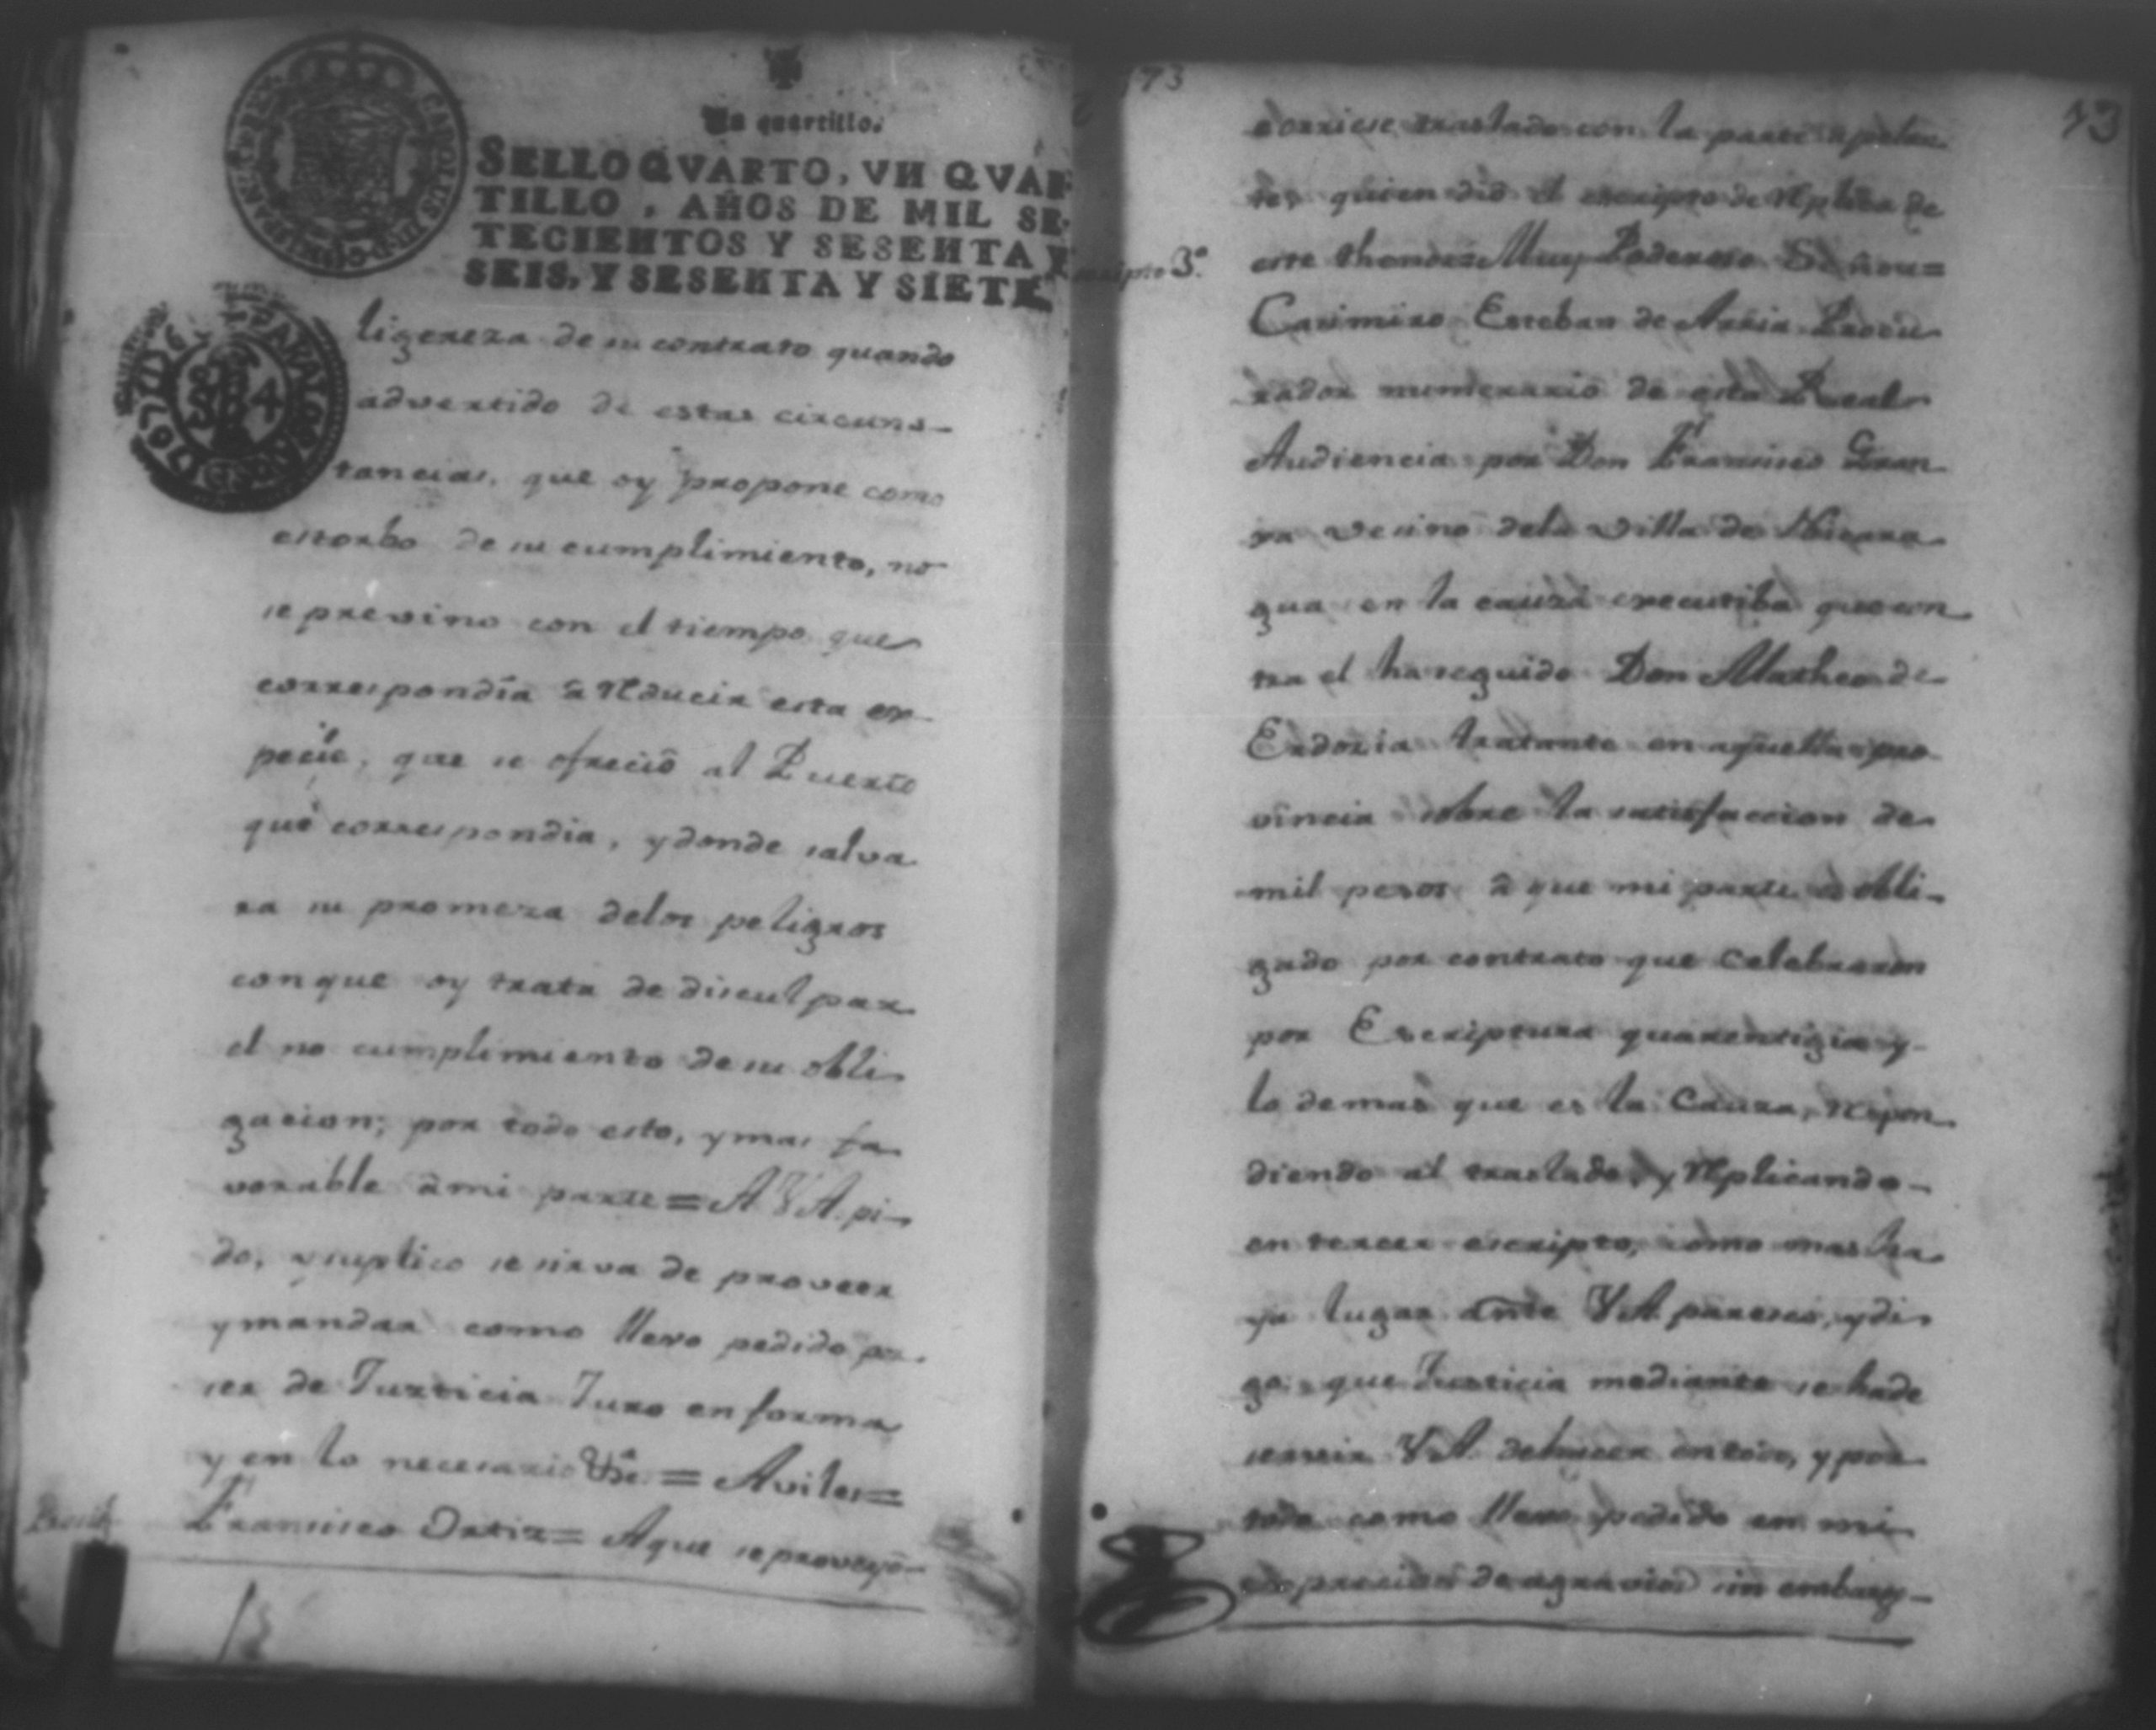 Un quartillo.
SELLO QVARTO, VN QVAR-
TILLO, AÑOS DE MIL SE-
TECIENTOS Y SESENTA Y
SEIS, Y SESENTA Y SIETE.
ligereza de su contrato quando
advertido de estas circuns-
tancias, que oy propone como
estorbo de su cumplimiento, no
se previno con el tiempo que
correspondía â reducir esta es-
pecie, que se ofreciô al Puerto
que correspondia, y donde salva
ra su promeza delos peligros
conque oy trata de disculpar
el no cumplimiento de su obli
gacion; por todo esto, y mas fa
vorable âmi parte = A. V. A. pi-
do, y suplico se sirva de proveer
y mandar como llevo pedido por
ser de Justicia Juro en forma
y en lo necesario &ce. = Aviles =
Francisco Ortiz = Aque se proveyó
73
73
escripto 3.º
corriese traslado con la parte apelan
te, quien dió el escripto de replica de
este thenor = Muy Poderoso Señor =
Casimiro Esteban de Arria Procu
rador numerario de esta Real
Audiencia por Don Francisco Gran
ra vesino dela villa de Nicara
gua en la cauza executiba que con
tra el ha seguido Don Matheo de
Erdozia tratante en aquella pro
vincia sobre la satisfaccion de
mil pesos â que mi parte es obli-
gado por contrato que celebraron
por Escriptura quarentigia y
lo demas que es la Cauza, respon
diendo al traslado, y replicando
en tercer escripto, como mas ha
ya lugar ante V. A. paresco, y di
go: que Justicia mediante se hade
servir V. A. dehacer en todo, y por
todo como llevo pedido en mi
expresion de agravios sin embarg-